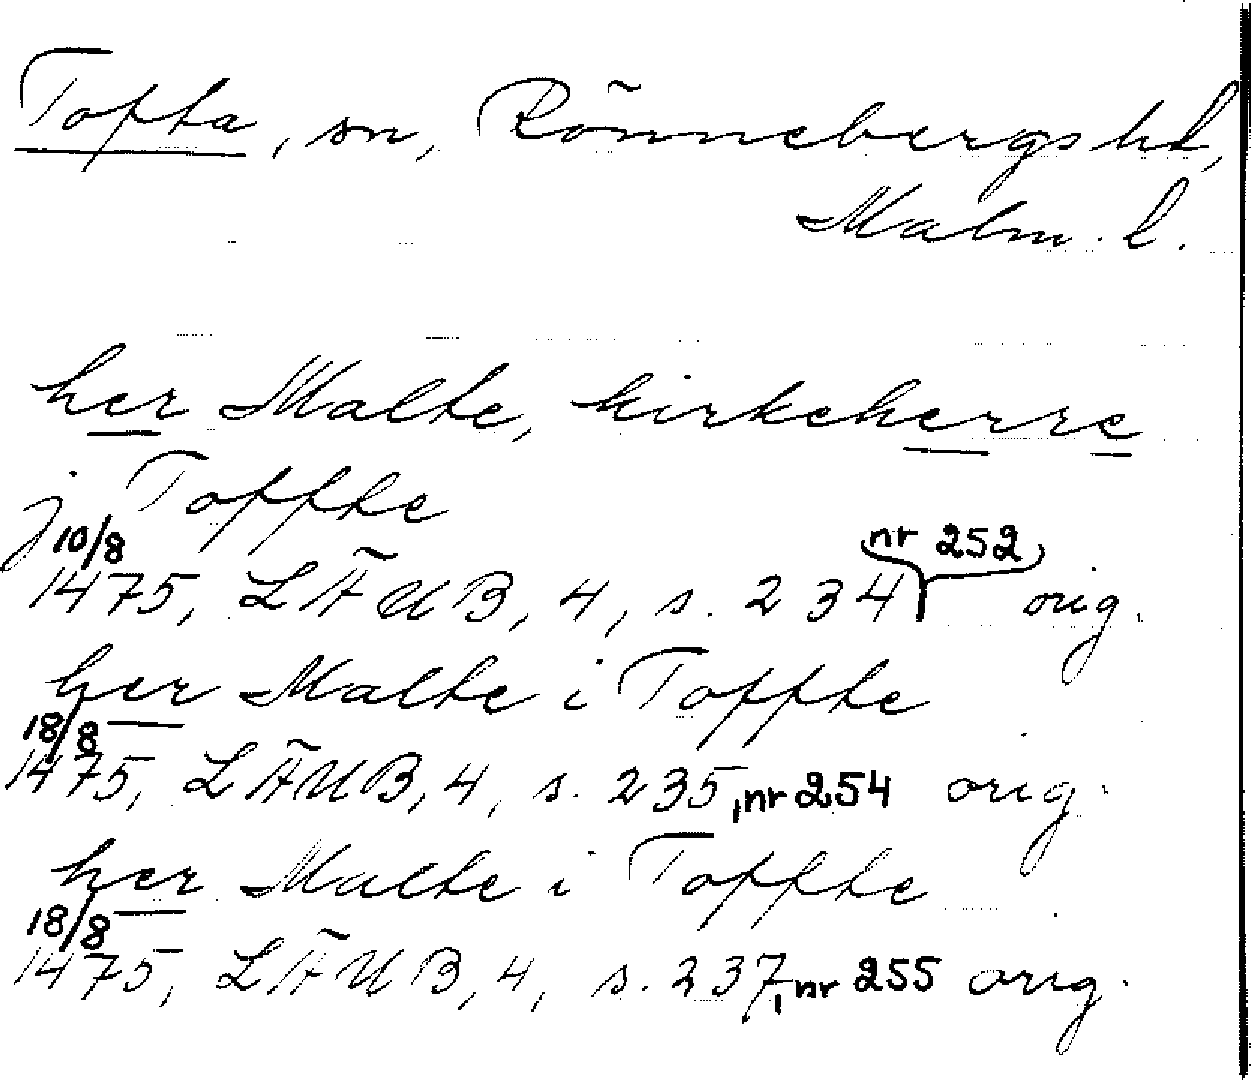 Tofta, sn, Rönnebergs hd,
Malm. l.
her Malte, kirkeherre
j Toffte
10/8 nr 252
1475, LÄUB, 4, s. 234 orig.
her Malte i Toffte
18/8
1475, LÄUB, 4, s. 235, nr 254 orig.
her Malte i Toffte
18/8
1475, LÄUB, 4, s. 237, nr 255 orig.